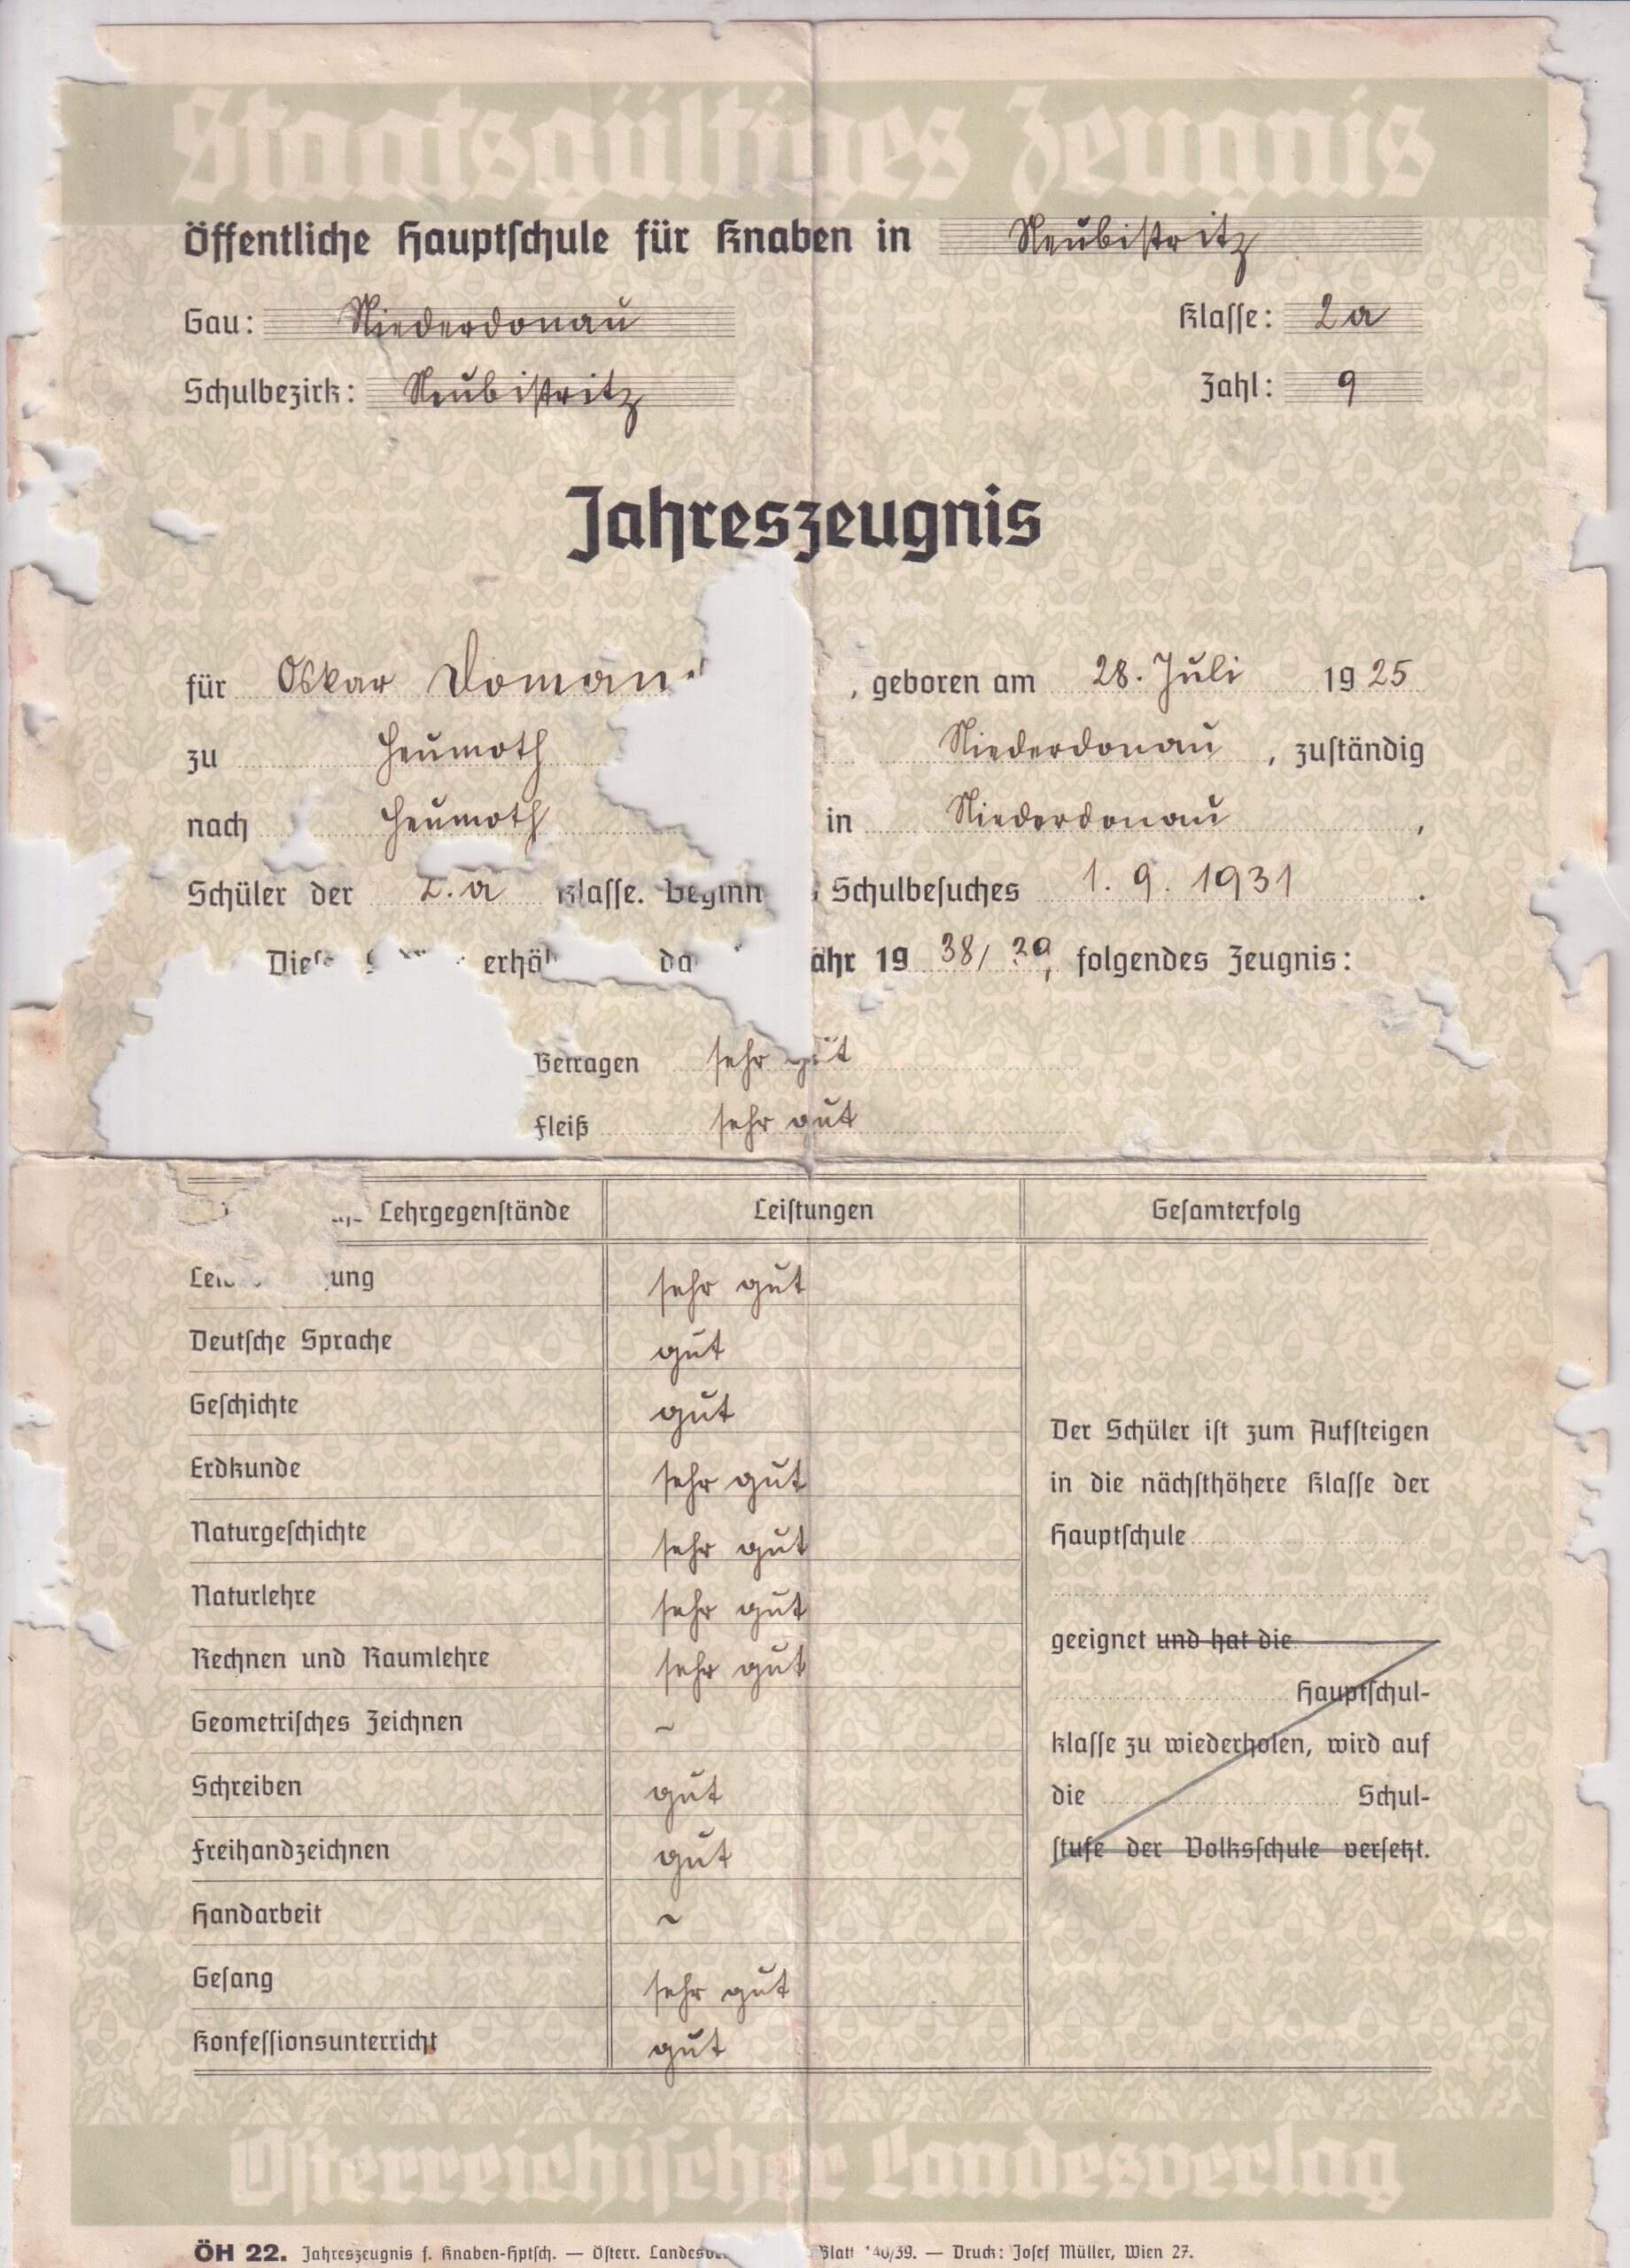 Staatsgültiges Zeugnis
Öffentliche Hauptschule für Knaben in Neubistritz
Gau: Niederdonau Klasse: 2a
Schulbezirk: Neubistritz Zahl: 9
Jahreszeugnis
für Oskar , geboren am 28. Juli 1925
zu Heumoth Niederdonau , zuständig
nach Heumoth in Niederdonau ,
Schüler der 2. a Klasse. Beginn Schulbesuches 1. 9. 1931 .
19 38/39, folgendes Zeugnis:
Betragen sehr gut
Fleiß sehr gut
Lehrgegenstände Leistungen Gesamterfolg
sehr gut
Deutsche Sprache gut
Geschichte gut
Erdkunde sehr gut
Naturgeschichte sehr gut
Naturlehre sehr gut
Rechnen und Raumlehre sehr gut
Geometrisches Zeichnen ~
Schreiben gut
Freihandzeichnen gut
Handarbeit ~
Gesang sehr gut
Konfessionsunterricht gut
Der Schüler ist zum Aufsteigen
in die nächsthöhere Klasse der
Hauptschule
geeignet und hat die
Hauptschul-
klasse zu wiederholen, wird auf
die Schul-
stufe der Volksschule versetzt.
Österreichischer Landesverlag
ÖH 22. Jahreszeugnis f. Knaben-Hptsch. — Österr. Blatt 140/39. — Druck: Josef Müller, Wien 27.